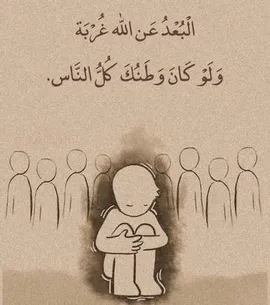 الْبُعْدُ عَن الله غُرْبَة
وَلَوْ كَانَ وَطَنُكَ كُلُّ النَّاس.